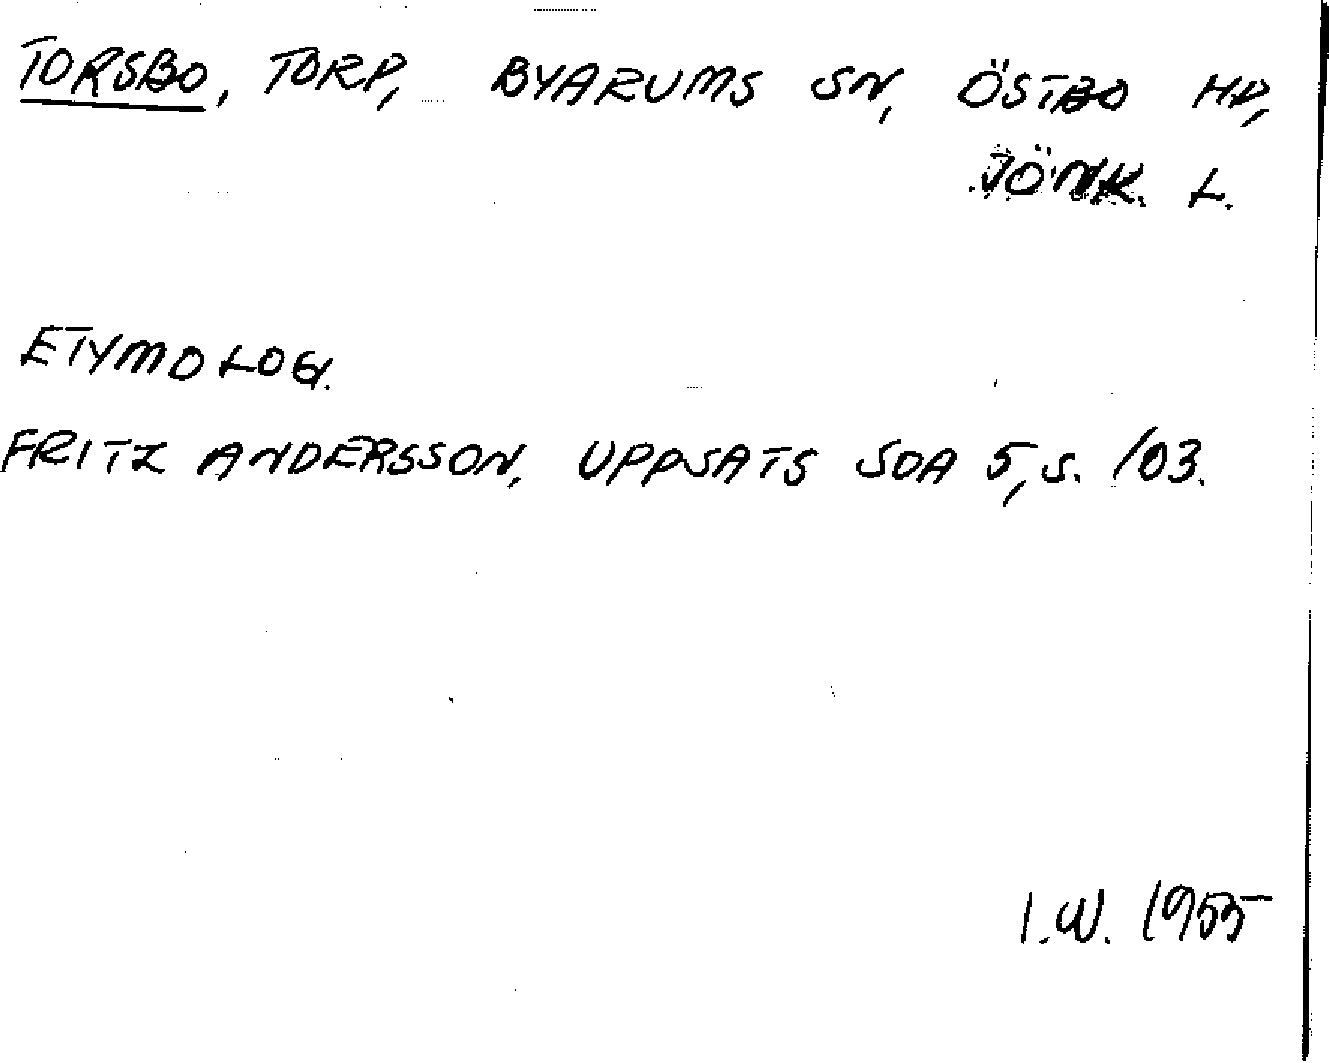 TORSBO, TORP, BYARUMS SN, ÖSTBO HD,
JÖNK. L.
ETYMOLOGI.
FRITZ ANDERSSON, UPPSATS SOA 5, S. 103.
I.W. 1955